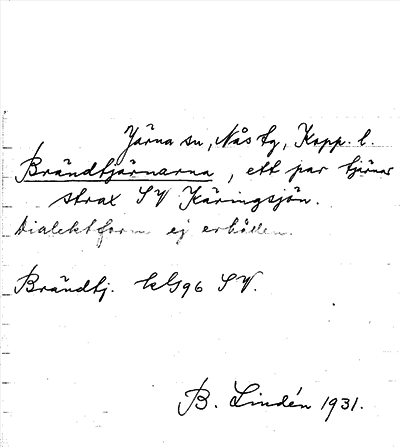 Järna sn, Nås tg, Kopp. l.
Brändtjärnarna, ett par tjärnar
strax SV Käringsjön.
Dialektform ej erhållen.
Brändtj. kG96 SV.
B. Lindén 1931.